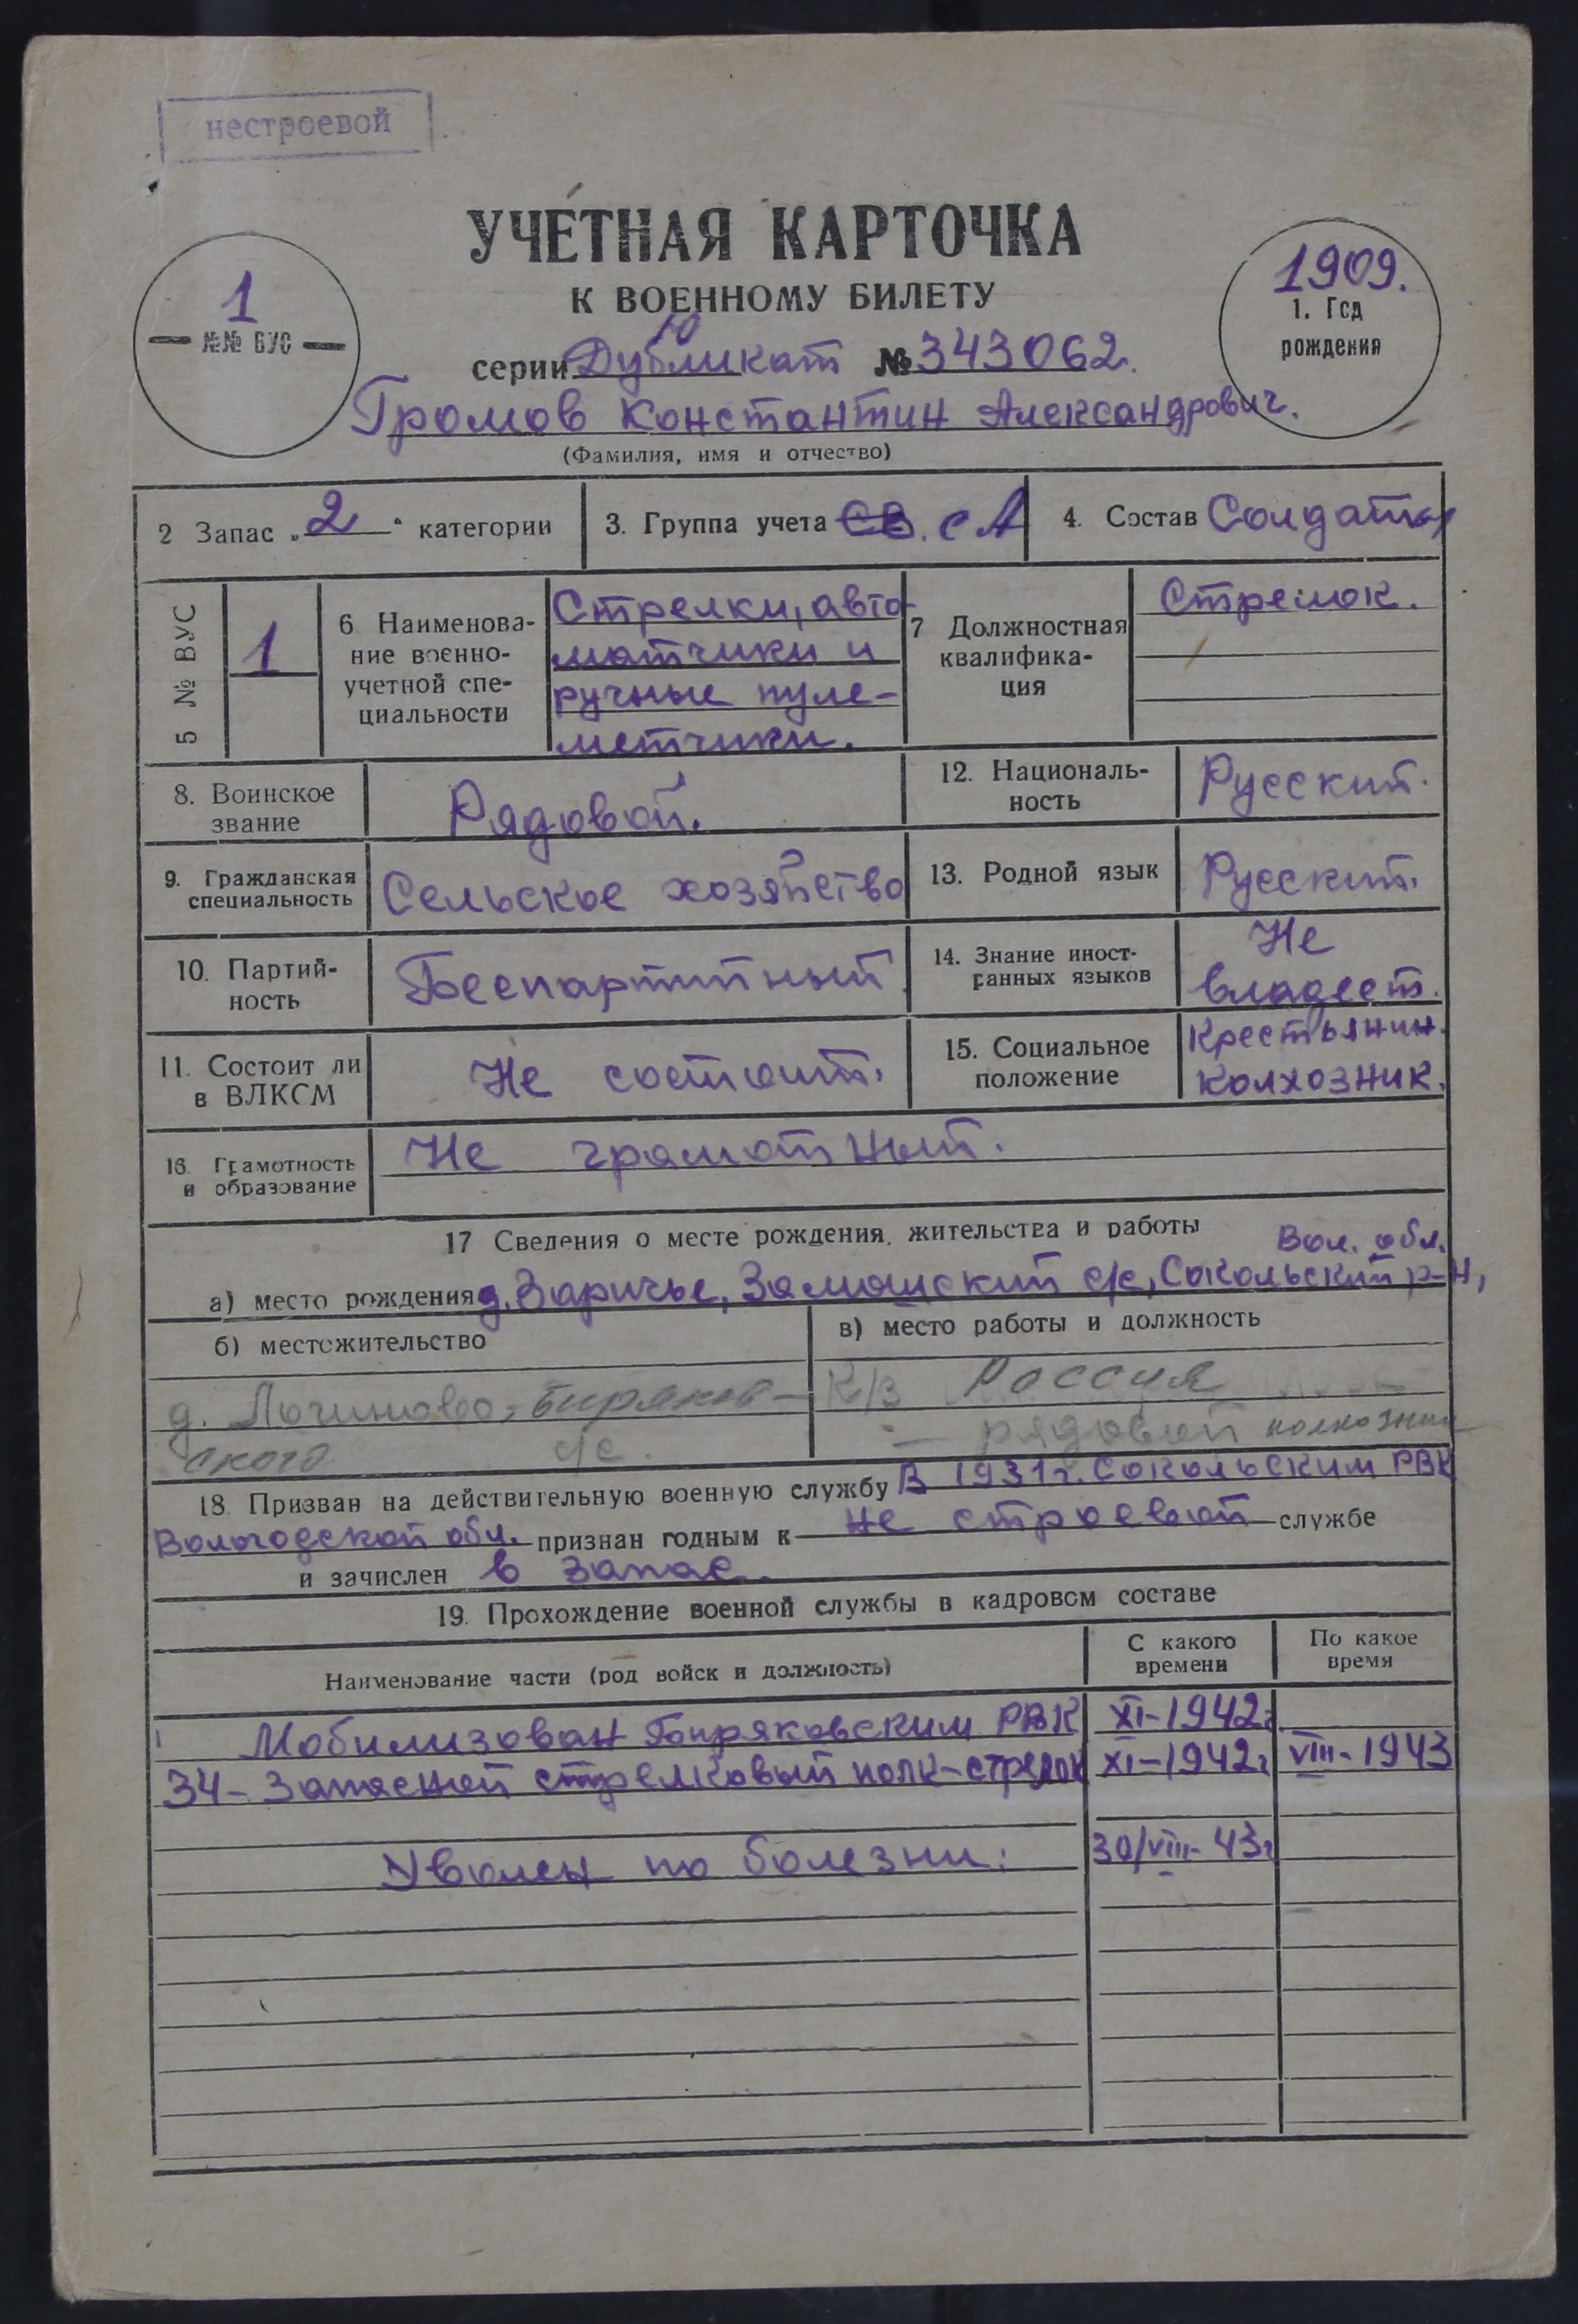 нестроевой
УЧЕТНАЯ КАРТОЧКА
К ВОЕННОМУ БИЛЕТУ
1
№№ ВУС
1909.
1. Год
рождения
Ю
серии Дубликат № 343062.
Громов Константин Александрович.
(Фамилия, имя и отчество)
2 Запас „2“ категории
3. Группа учета СВ. СА
4. Состав Солдаты
5 № ВУС
1
6 Наименова-
ние военно-
учетной спе-
циальности
Стрелки, авто-
матчики и
ручные пуле-
метчики.
7 Должностная
квалифика-
ция
Стрелок.
8. Воинское
звание
Рядовой.
12. Националь-
ность
Русский.
9. Гражданская
специальность
Сельское хозяйство
13. Родной язык
Русский.
10. Партий-
ность
Беспартийный.
14. Знание иност-
ранных языков
Не
владеет.
11. Состоит ли
в ВЛКСМ
Не состоит.
15. Социальное
положение
Крестьянин.
колхозник.
16. Грамотность
и образование
Не грамотный.
17 Сведения о месте рождения, жительства и работы
Вол. обл.
а) место рождения д. Заричье, Замошский с/с, Сокольский р-н,
б) местожительство
д. Починово, Биряков-
ского с/с.
в) место работы и должность
К/з Россия
— рядовой колхозник
18. Призван на действительную военную службу В 1931г. Сокольским РВК
Вологодской обл. признан годным к не строевой службе
и зачислен в запас.
19. Прохождение военной службы в кадровом составе
Наименование части (род войск и должность)
С какого
времени
По какое
время
Мобилизован Биряковским РВК XI-1942г
34- Запасной стрелковый полк-стрелок XI-1942г VIII-1943
Уволен по болезни. 30/VIII-43г